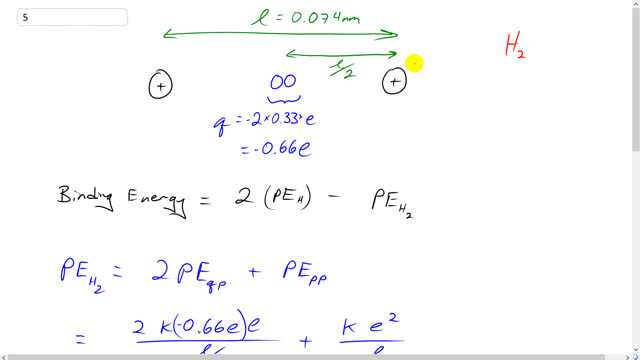 5
l = 0.074nm
H₂
l/2
+ OO +
q = -2×0.33×e
= -0.66e
Binding Energy = 2 (PE_H) - PE_H₂
PE_H₂ = 2 PE_qp + PE_pp
= 2 k(-0.66e)e / l/ + k e² / l